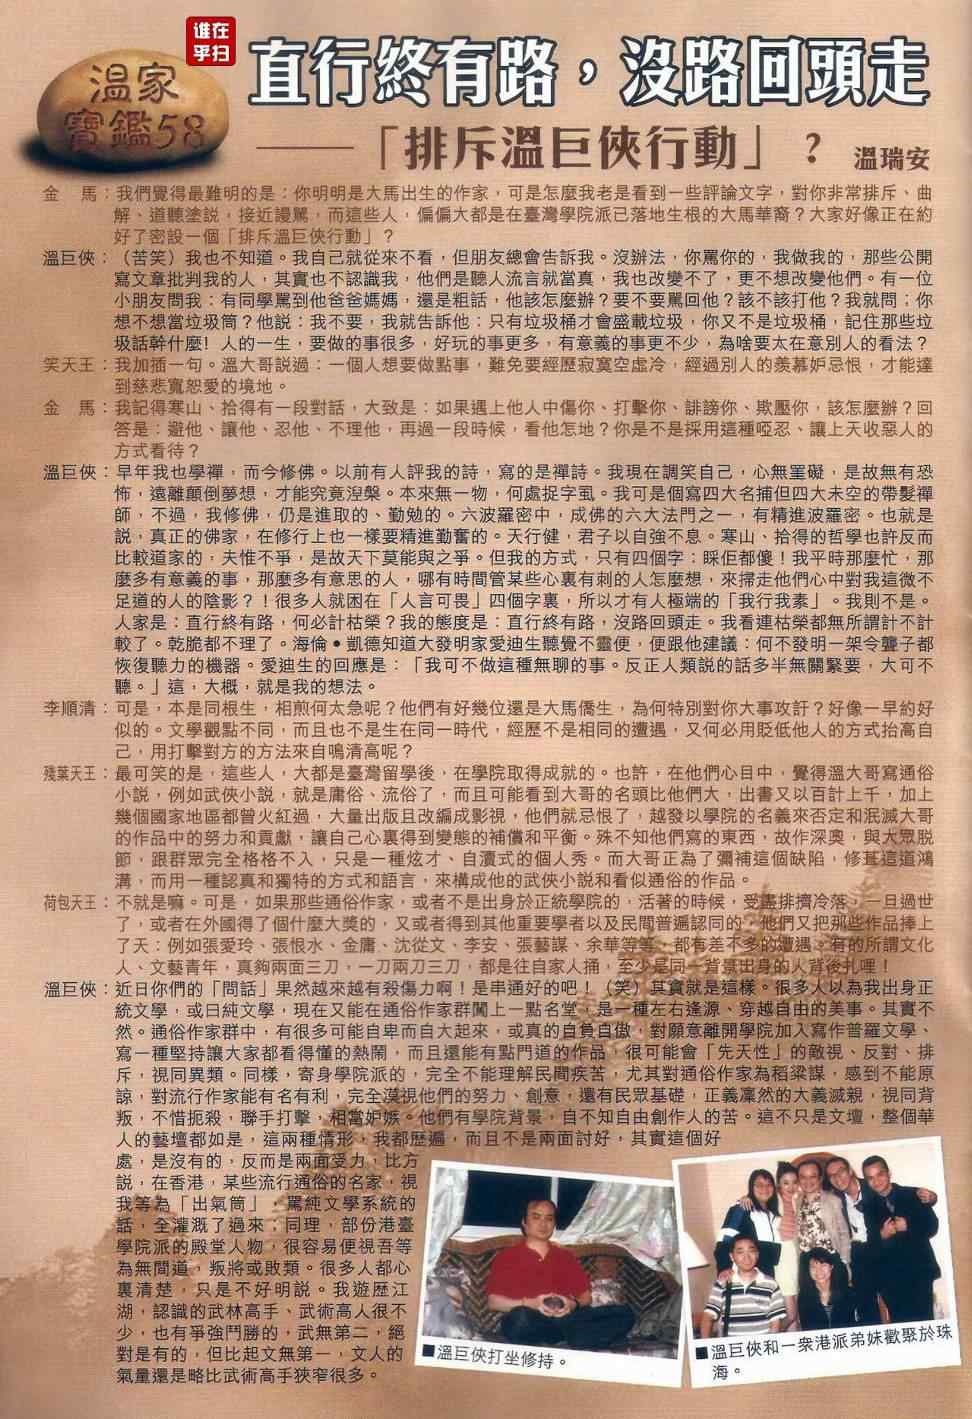 谁在
乎扫
溫家
寶鑑58
直行終有路，沒路回頭走
——「排斥溫巨俠行動」？ 溫瑞安
金　馬：我們覺得最難明的是：你明明是大馬出生的作家，可是怎麼我老是看到一些評論文字，對你非常排斥、曲
解、道聽塗說，接近謾罵，而這些人，偏偏大都是在臺灣學院派已落地生根的大馬華裔？大家好像正在約
好了密設一個「排斥溫巨俠行動」？
溫巨俠：（苦笑）我也不知道。我自己就從來不看，但朋友總會告訴我。沒辦法，你罵你的，我做我的，那些公開
寫文章批判我的人，其實也不認識我，他們是聽人流言就當真，我也改變不了，更不想改變他們。有一位
小朋友問我：有同學罵到他爸爸媽媽，還是粗話，他該怎麼辦？要不要罵回他？該不該打他？我就問：你
想不想當垃圾筒？他說：我不要，我就告訴他：只有垃圾桶才會盛載垃圾，你又不是垃圾桶，記住那些垃
圾話幹什麼！人的一生，要做的事很多，好玩的事更多，有意義的事更不少，為啥要太在意別人的看法？
笑天王：我加插一句。溫大哥說過：一個人想要做點事，難免要經歷寂寞空虛冷，經過別人的羨慕妒忌恨，才能達
到慈悲寬恕愛的境地。
金　馬：我記得寒山、拾得有一段對話，大致是：如果遇上他人中傷你、打擊你、誹謗你、欺壓你，該怎麼辦？回
答是：避他、讓他、忍他、不理他，再過一段時候，看他怎地？你是不是採用這種啞忍、讓上天收惡人的
方式看待？
溫巨俠：早年我也學禪，而今修佛。以前有人評我的詩，寫的是禪詩。我現在調笑自己，心無罣礙，是故無有恐
怖，遠離顛倒夢想，才能究竟涅槃。本來無一物，何處捉字虱。我可是個寫四大名捕但四大未空的帶髮禪
師，不過，我修佛，仍是進取的、勤勉的。六波羅密中，成佛的六大法門之一，有精進波羅密。也就是
說，真正的佛家，在修行上也一樣要精進勤奮的。天行健，君子以自強不息。寒山、拾得的哲學也許反而
比較道家的，夫惟不爭，是故天下莫能與之爭。但我的方式，只有四個字：睬佢都傻！我平時那麼忙，那
麼多有意義的事，那麼多有意思的人，哪有時間管某些心裏有刺的人怎麼想，來掃走他們心中對我這微不
足道的人的陰影？！很多人就困在「人言可畏」四個字裏，所以才有人極端的「我行我素」。我則不是。
人家是：直行終有路，何必計枯榮？我的態度是：直行終有路，沒路回頭走。我看連枯榮都無所謂計不計
較了。乾脆都不理了。海倫•凱德知道大發明家愛迪生聽覺不靈便，便跟他建議：何不發明一架令聾子都
恢復聽力的機器。愛迪生的回應是：「我可不做這種無聊的事。反正人類說的話多半無關緊要，大可不
聽。」這，大概，就是我的想法。
李順清：可是，本是同根生，相煎何太急呢？他們有好幾位還是大馬僑生，為何特別對你大事攻訐？好像一早約好
似的。文學觀點不同，而且也不是生在同一時代，經歷不是相同的遭遇，又何必用貶低他人的方式抬高自
己，用打擊對方的方法來自鳴清高呢？
殘葉天王：最可笑的是，這些人，大都是臺灣留學後，在學院取得成就的。也許，在他們心目中，覺得溫大哥寫通俗
小說，例如武俠小說，就是庸俗、流俗了，而且可能看到大哥的名頭比他們大，出書又以百計上千，加上
幾個國家地區都曾火紅過，大量出版且改編成影視，他們就忌恨了，越發以學院的名義來否定和泯滅大哥
的作品中的努力和貢獻，讓自己心裏得到變態的補償和平衡。殊不知他們寫的東西，故作深奧，與大眾脫
節，跟群眾完全格格不入，只是一種炫才、自瀆式的個人秀。而大哥正為了彌補這個缺陷，修葺這道鴻
溝，而用一種認真和獨特的方式和語言，來構成他的武俠小說和看似通俗的作品。
荷包天王：不就是嘛。可是，如果那些通俗作家，或者不是出身於正統學院的，活著的時候，受盡排擠冷落，一旦過世
了，或者在外國得了個什麼大獎的，又或者得到其他重要學者以及民間普遍認同的，他們又把那些作品捧上
了天：例如張愛玲、張恨水、金庸、沈從文、李安、張藝謀、余華等等，都有差不多的遭遇。有的所謂文化
人、文藝青年，真夠兩面三刀，一刀兩刀三刀，都是往自家人捅，至少是同一背景出身的人背後扎哩！
溫巨俠：近日你們的「問話」果然越來越有殺傷力啊！是串通好的吧！（笑）其實就是這樣。很多人以為我出身正
統文學，或曰純文學，現在又能在通俗作家群闖上一點名堂，是一種左右逢源、穿越自由的美事。其實不
然。通俗作家群中，有很多可能自卑而自大起來，或真的自負自傲，對願意離開學院加入寫作普羅文學、
寫一種堅持讓大家都看得懂的熱鬧，而且還能有點門道的作品，很可能會「先天性」的敵視、反對、排
斥，視同異類。同樣，寄身學院派的，完全不能理解民間疾苦，尤其對通俗作家為稻粱謀，感到不能原
諒，對流行作家能有名有利，完全漠視他們的努力、創意，還有民眾基礎，正義凜然的大義滅親，視同背
叛，不惜扼殺，聯手打擊，相當妒嫉。他們有學院背景，自不知自由創作人的苦。這不只是文壇，整個華
人的藝壇都如是，這兩種情形，我都歷遍，而且不是兩面討好，其實這個好
處，是沒有的，反而是兩面受力。比方
說，在香港，某些流行通俗的名家，視
我等為「出氣筒」，罵純文學系統的
話，全灌溉了過來；同理，部份港臺
學院派的殿堂人物，很容易便視吾等
為無間道，叛將或敗類。很多人都心
裏清楚，只是不好明說。我遊歷江
湖，認識的武林高手、武術高人很不
少，也有爭強鬥勝的，武無第二，絕
對是有的，但比起文無第一，文人的
氣量還是略比武術高手狹窄很多。
■溫巨俠打坐修持。
■溫巨俠和一衆港派弟妹歡聚於珠
海。